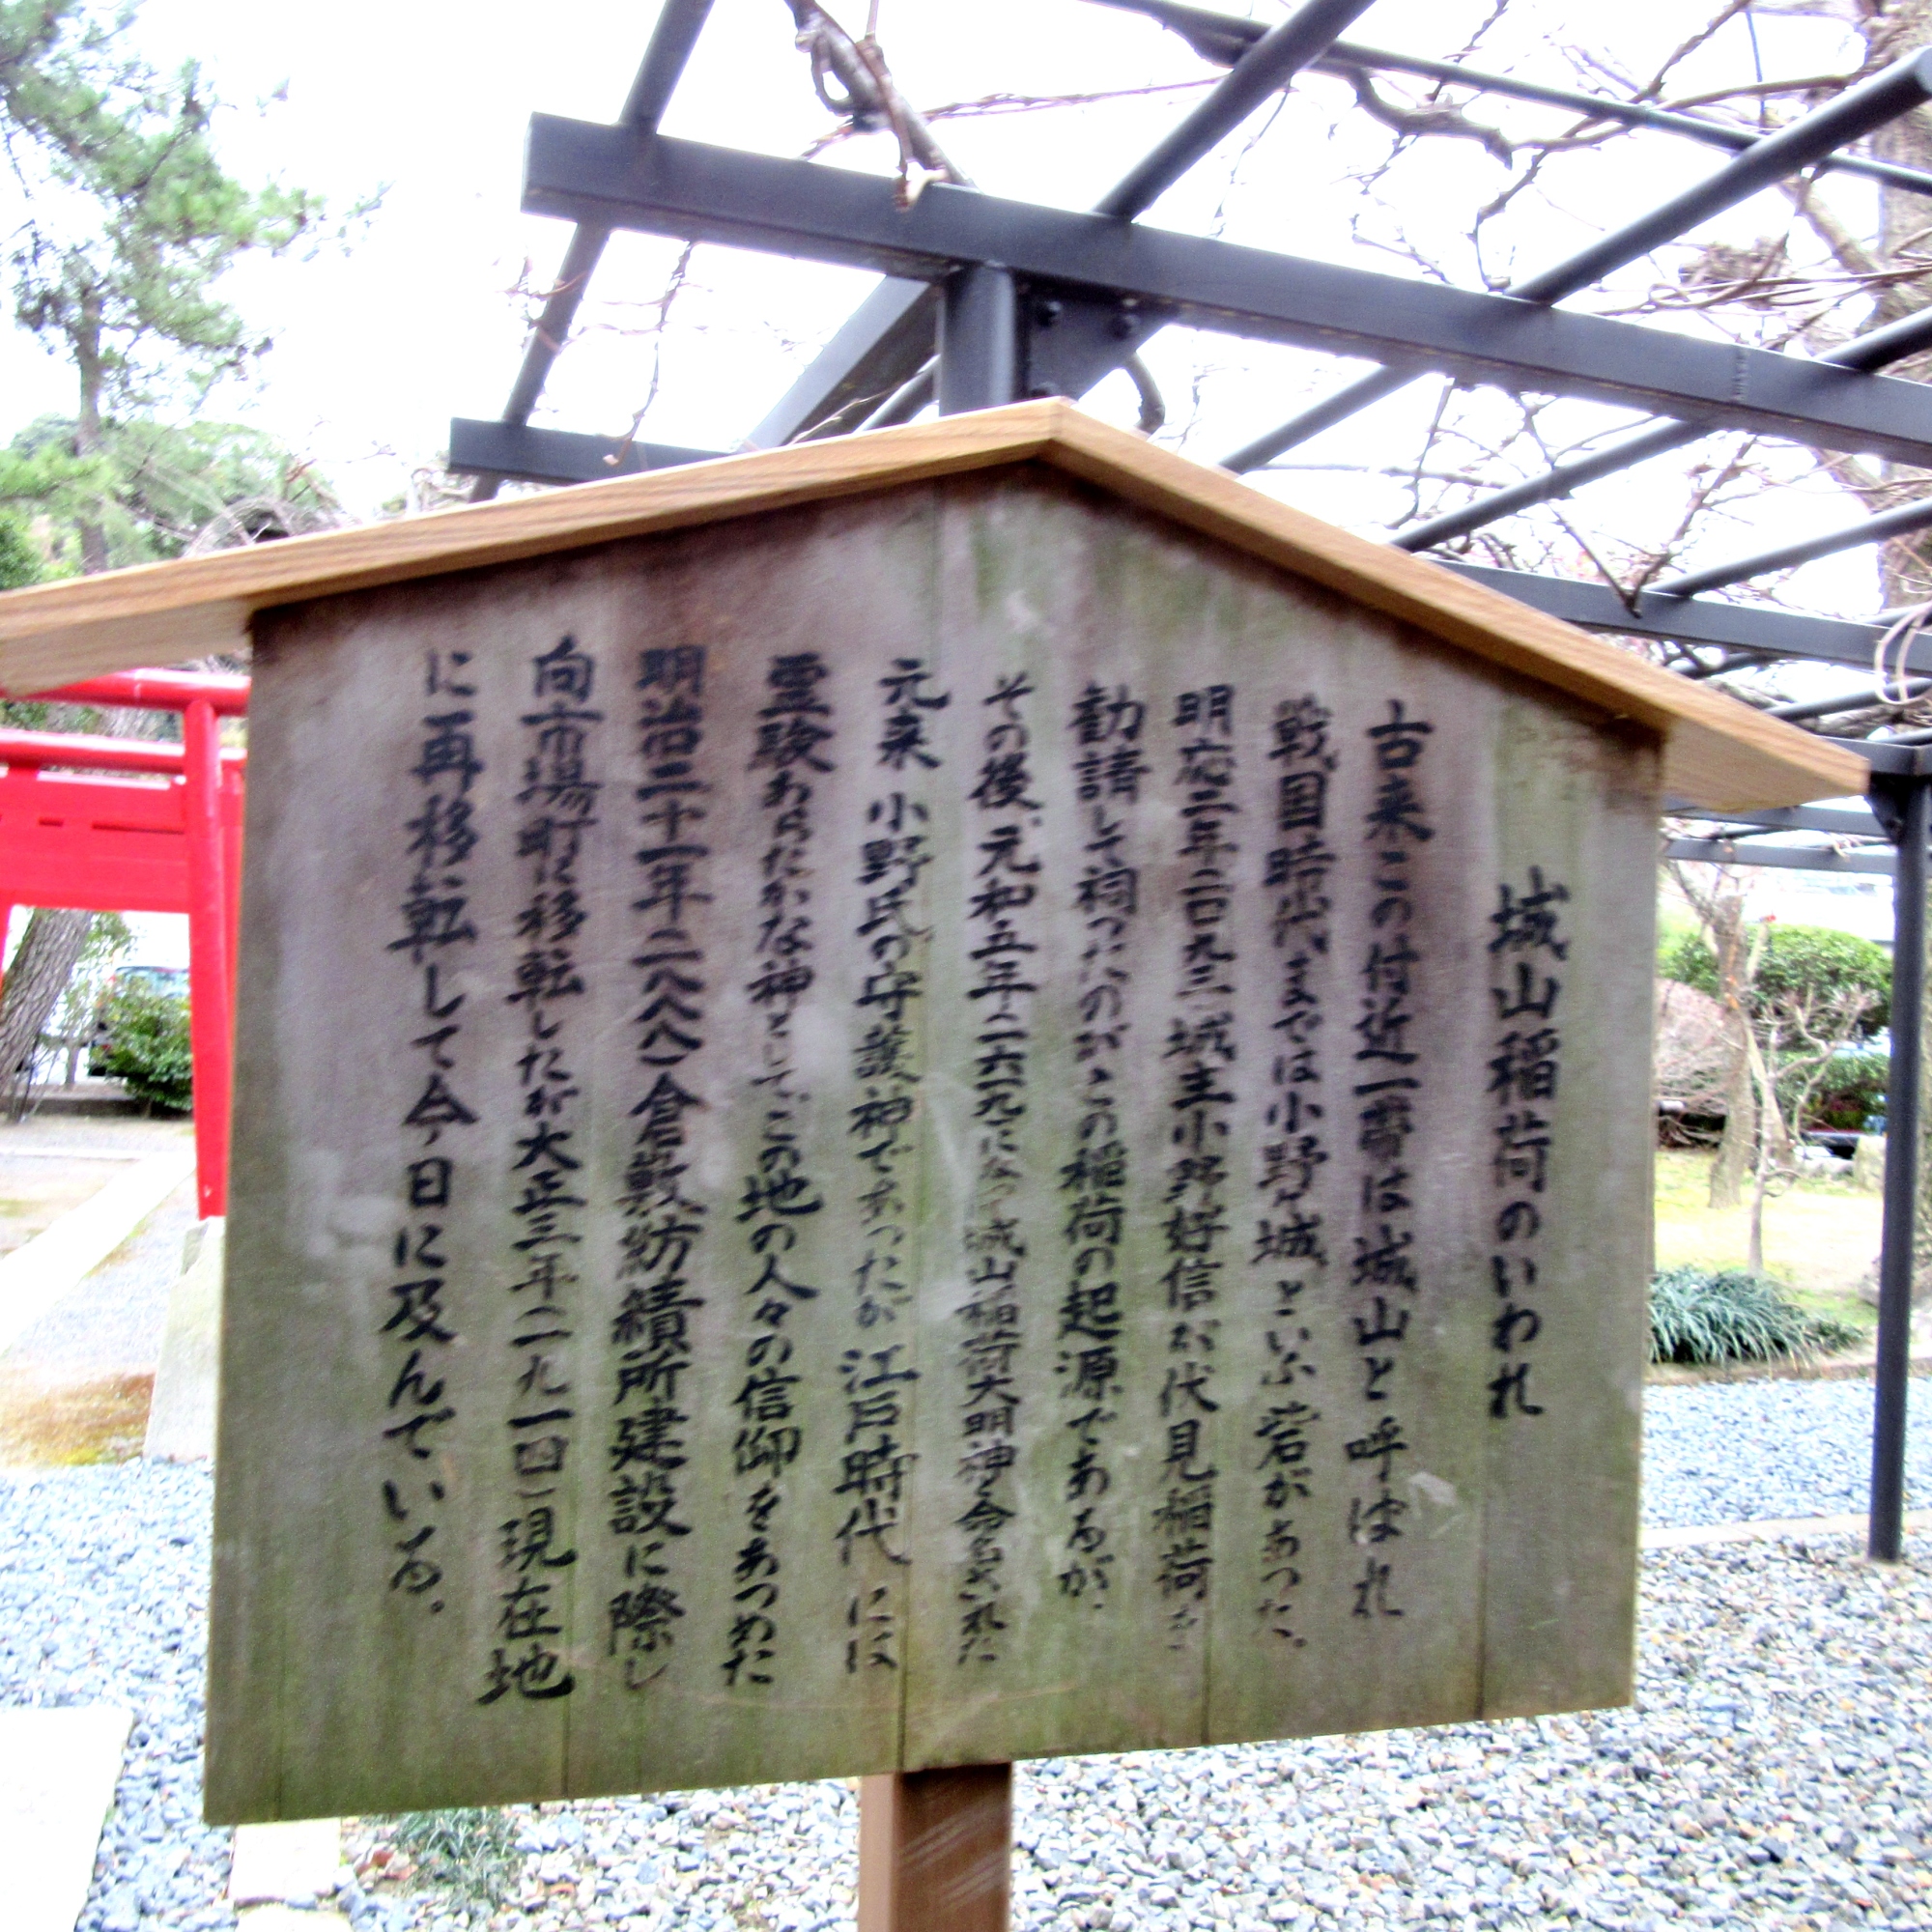 城山稲荷のいわれ
古来この付近一帯は城山と呼ばれ
戦国時代までは小野城という砦があった。
明応二年(一四九三)城主小野好信が伏見稲荷を
勧請して祠ったのがこの稲荷の起源であるが、
その後、元和五年(一六一九)になって城山稲荷大明神と命名された
元来 小野氏の守護神であったが 江戸時代には
霊験あらたかな神としてこの地の人々の信仰をあつめた
明治二十一年(一八八八)倉敷紡績所建設に際し
向市場町に移転したが大正三年(一九一四)現在地
に再移転して今日に及んでいる。